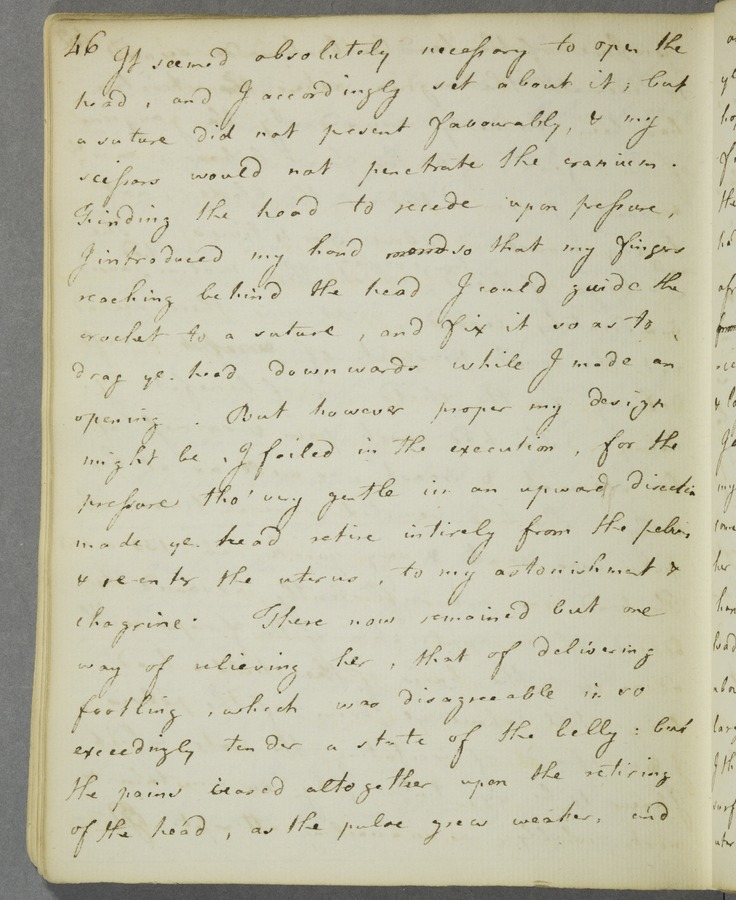 46 It seemed absolutely necessary to open the
head, and I accordingly set about it; but
a suture did not present favourably, & my
scissars would not penetrate the cranium.
Finding the head to recede upon pressure,
I introduced my hand so that my fingers
reaching behind the head I could guide the
crochet to a suture, and fix it so as to
drag ye. head downwards while I made an
opening. But however proper my design
might be, I failed in the execution, for the
pressure tho' very gentle in an upward direction
made ye. head retire intirely from the pelvis
& re-enter the uterus, to my astonishment &
chagrine. There now remained but one
way of relieving her, that of delivering
footling, which was disagreeable in so
exceedingly tender a state of the belly: but
the pains ceased altogether upon the retiring
of the head, as the pulse grew weaker, and